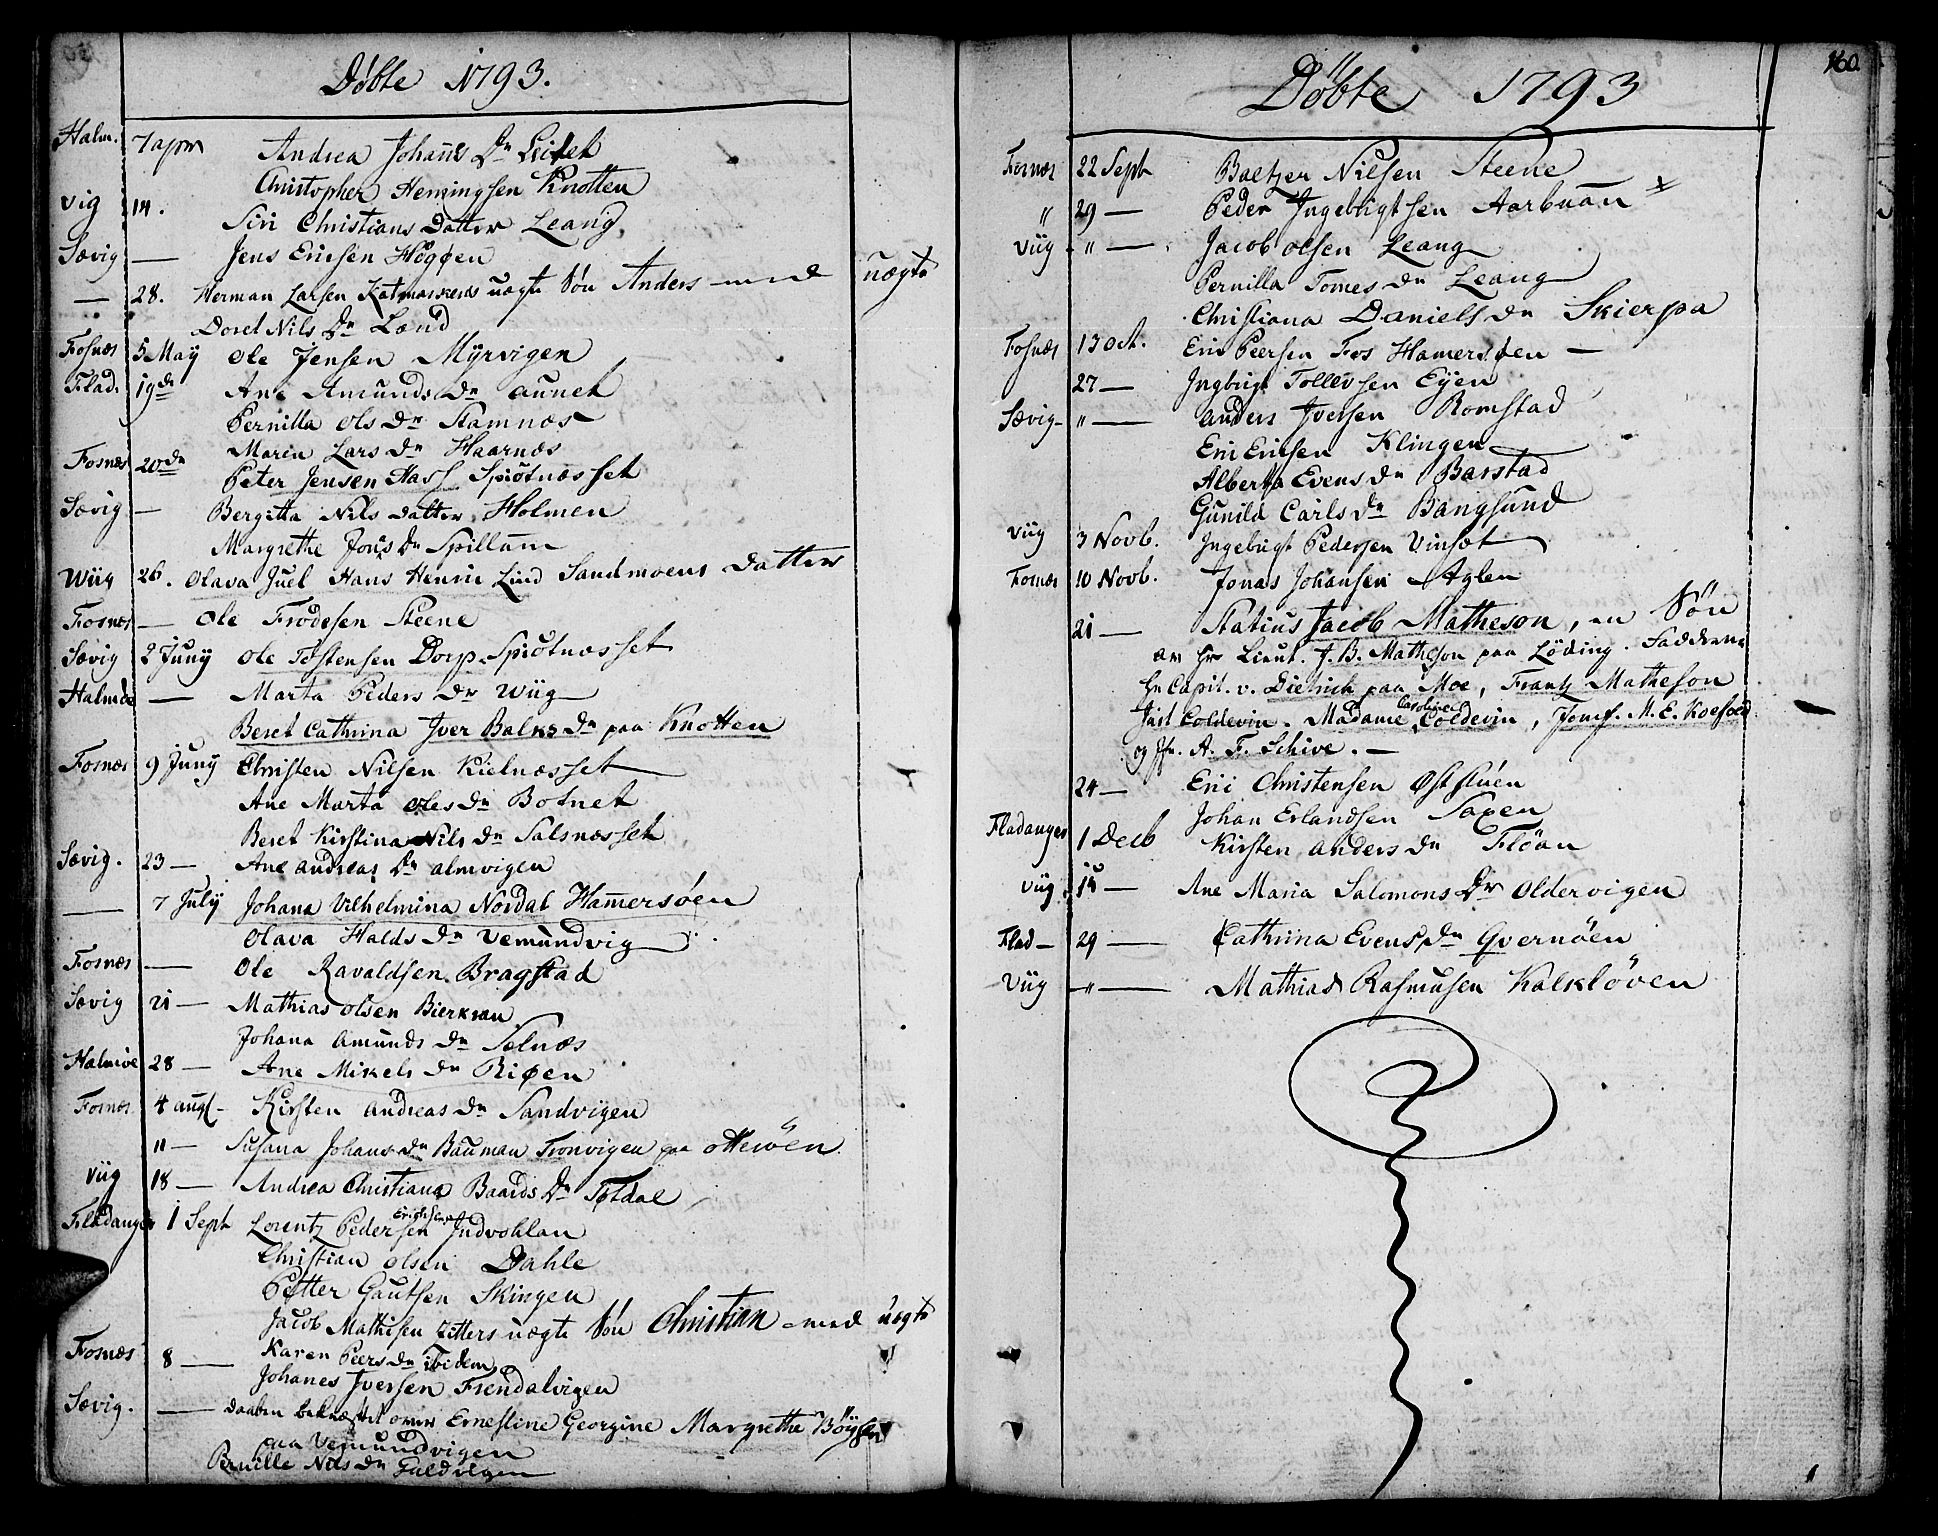 Døbte 1793.
Halm. 7 apr Andrea Johans Dr Leitet
Christopher Hemingsen Knotten
Vig 14. Siri Christians Datter Leang.
Sævig — Jens Ericsen Høgøen
— 28. Herman Larsen uægte Søn Anders – med uægte
Doret Nils Dr Lænd
Fosnæs 5 May Ole Jensen Myrvigen
Flad. 19de Ane Amunds Dr Aunet
Pernilla Ols Dr Stamnæs
Maren Lars Dr Haarnæs
Fosnæs 20de Peter Jensen Hass Spiøtnæsset
Sævig — Bergitta Nils datter Holmen
Margrethe Jons Dr Spillum
Wiig 26. Olava Juel Hans Henric Lind Sandmoens Datter
Fosnæs — Ole Frodesen Steene
Sævig 2 Juny Ole Tostensen Dorp. Spiotnæsset
Halmøe — Marta Peders Dr Wiig
Beret Cathrina Iver Balks Dr paa Knotten
Fosnæs 9 Juny Christen Nilsen Kielnæsset
Ane Marta Oles Dr Botnet
Beret Kirstina Nils Dr Salsnæsset
Sævig. 23 — Ane Andreas Dr Almvigen
— 7 July Johana Vilhelmina Nordal Hamersøen
Olava Halds Dr Vemundvig
Fosnæs — Ole Ravaldsen Bragstad
Sævig 21 — Mathias Olsen Bierkran
Johana Amunds Dr Sælnæs
Halmøe 28 — Ane Mikels Dr Riøen
Fosnæs 4 augl – Kirsten Andreas Dr Sandvigen
11 — Susana Johans Dr Bauman Tronvigen paa Otterøen.
Viig 18 — Andrea Christiana Baards Dr Føtdal
Fladanger 1 Sept Lorentz Pedersen Erichsen Indvohlan
Christian Olsen Dahle
Petter Gautsen Skingen
Jacob Mathisen Zitters uægte Søn Christian – med uægte
Fosnæs 8 — Karen Peers Dr ibidem
Johanes Iversen Frendalvigen
Sævig. — Daaben bekræftet over Ernestine Georgine Margrethe Böysen
paa Vemundvigen
Pernille Nils Dr Faldvigen
160.
Døbte 1793
Fosnæs 22 Sept Baltzer Nilsen Steene
" 29 — Peder Ingebrigtsen Aarbuan
Viig – " — Jacob Olsen Leang
Pernilla Tomes Dr Leang
Christiana Daniels Dr Skierpa
Fosnæs 13 Oct. Eric Peersen Fos Hamersøen —
27 — Ingbrigt Tollevsen Eyen
Sævig – " — Anders Iversen Romstad
Eric Ericsen Klingen
Alberta Evens Dr Barstad
Gunild Carls Dr Bangsund
Viig 3 Novb. Ingebrigt Pedersen Vinset
Fosnæs 10 Novb. Jonas Johansen Aglen
21 — Statius Jacob Matheson, en Søn
av Hr Lieut. J. B. Matheson paa Löding. Fadderne
Hr Capit. v. Dietrich paa Moe, Frantz Matheson
Just Coldevin. Madame Carolina Coldevin, Jomf. M. E. Koefoed
og Jfr. A. F. Schive. —
24 — Eric Christensen Østsluen
Johan Erlandsen Saxen
Fladanger 1 Decb Kirsten Anders Dr Flöan
Viig 15 — Ane Maria Salomons Dr Oldervigen
Flad — 29 — Cathrina Evens Dr Qvernöen
Viig – " — Mathias Rasmusen Kalklöven